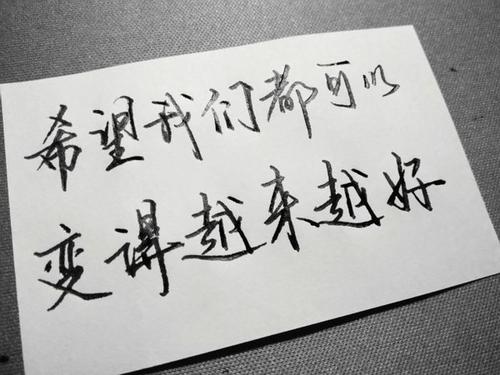 希望我们都可以
变得越来越好